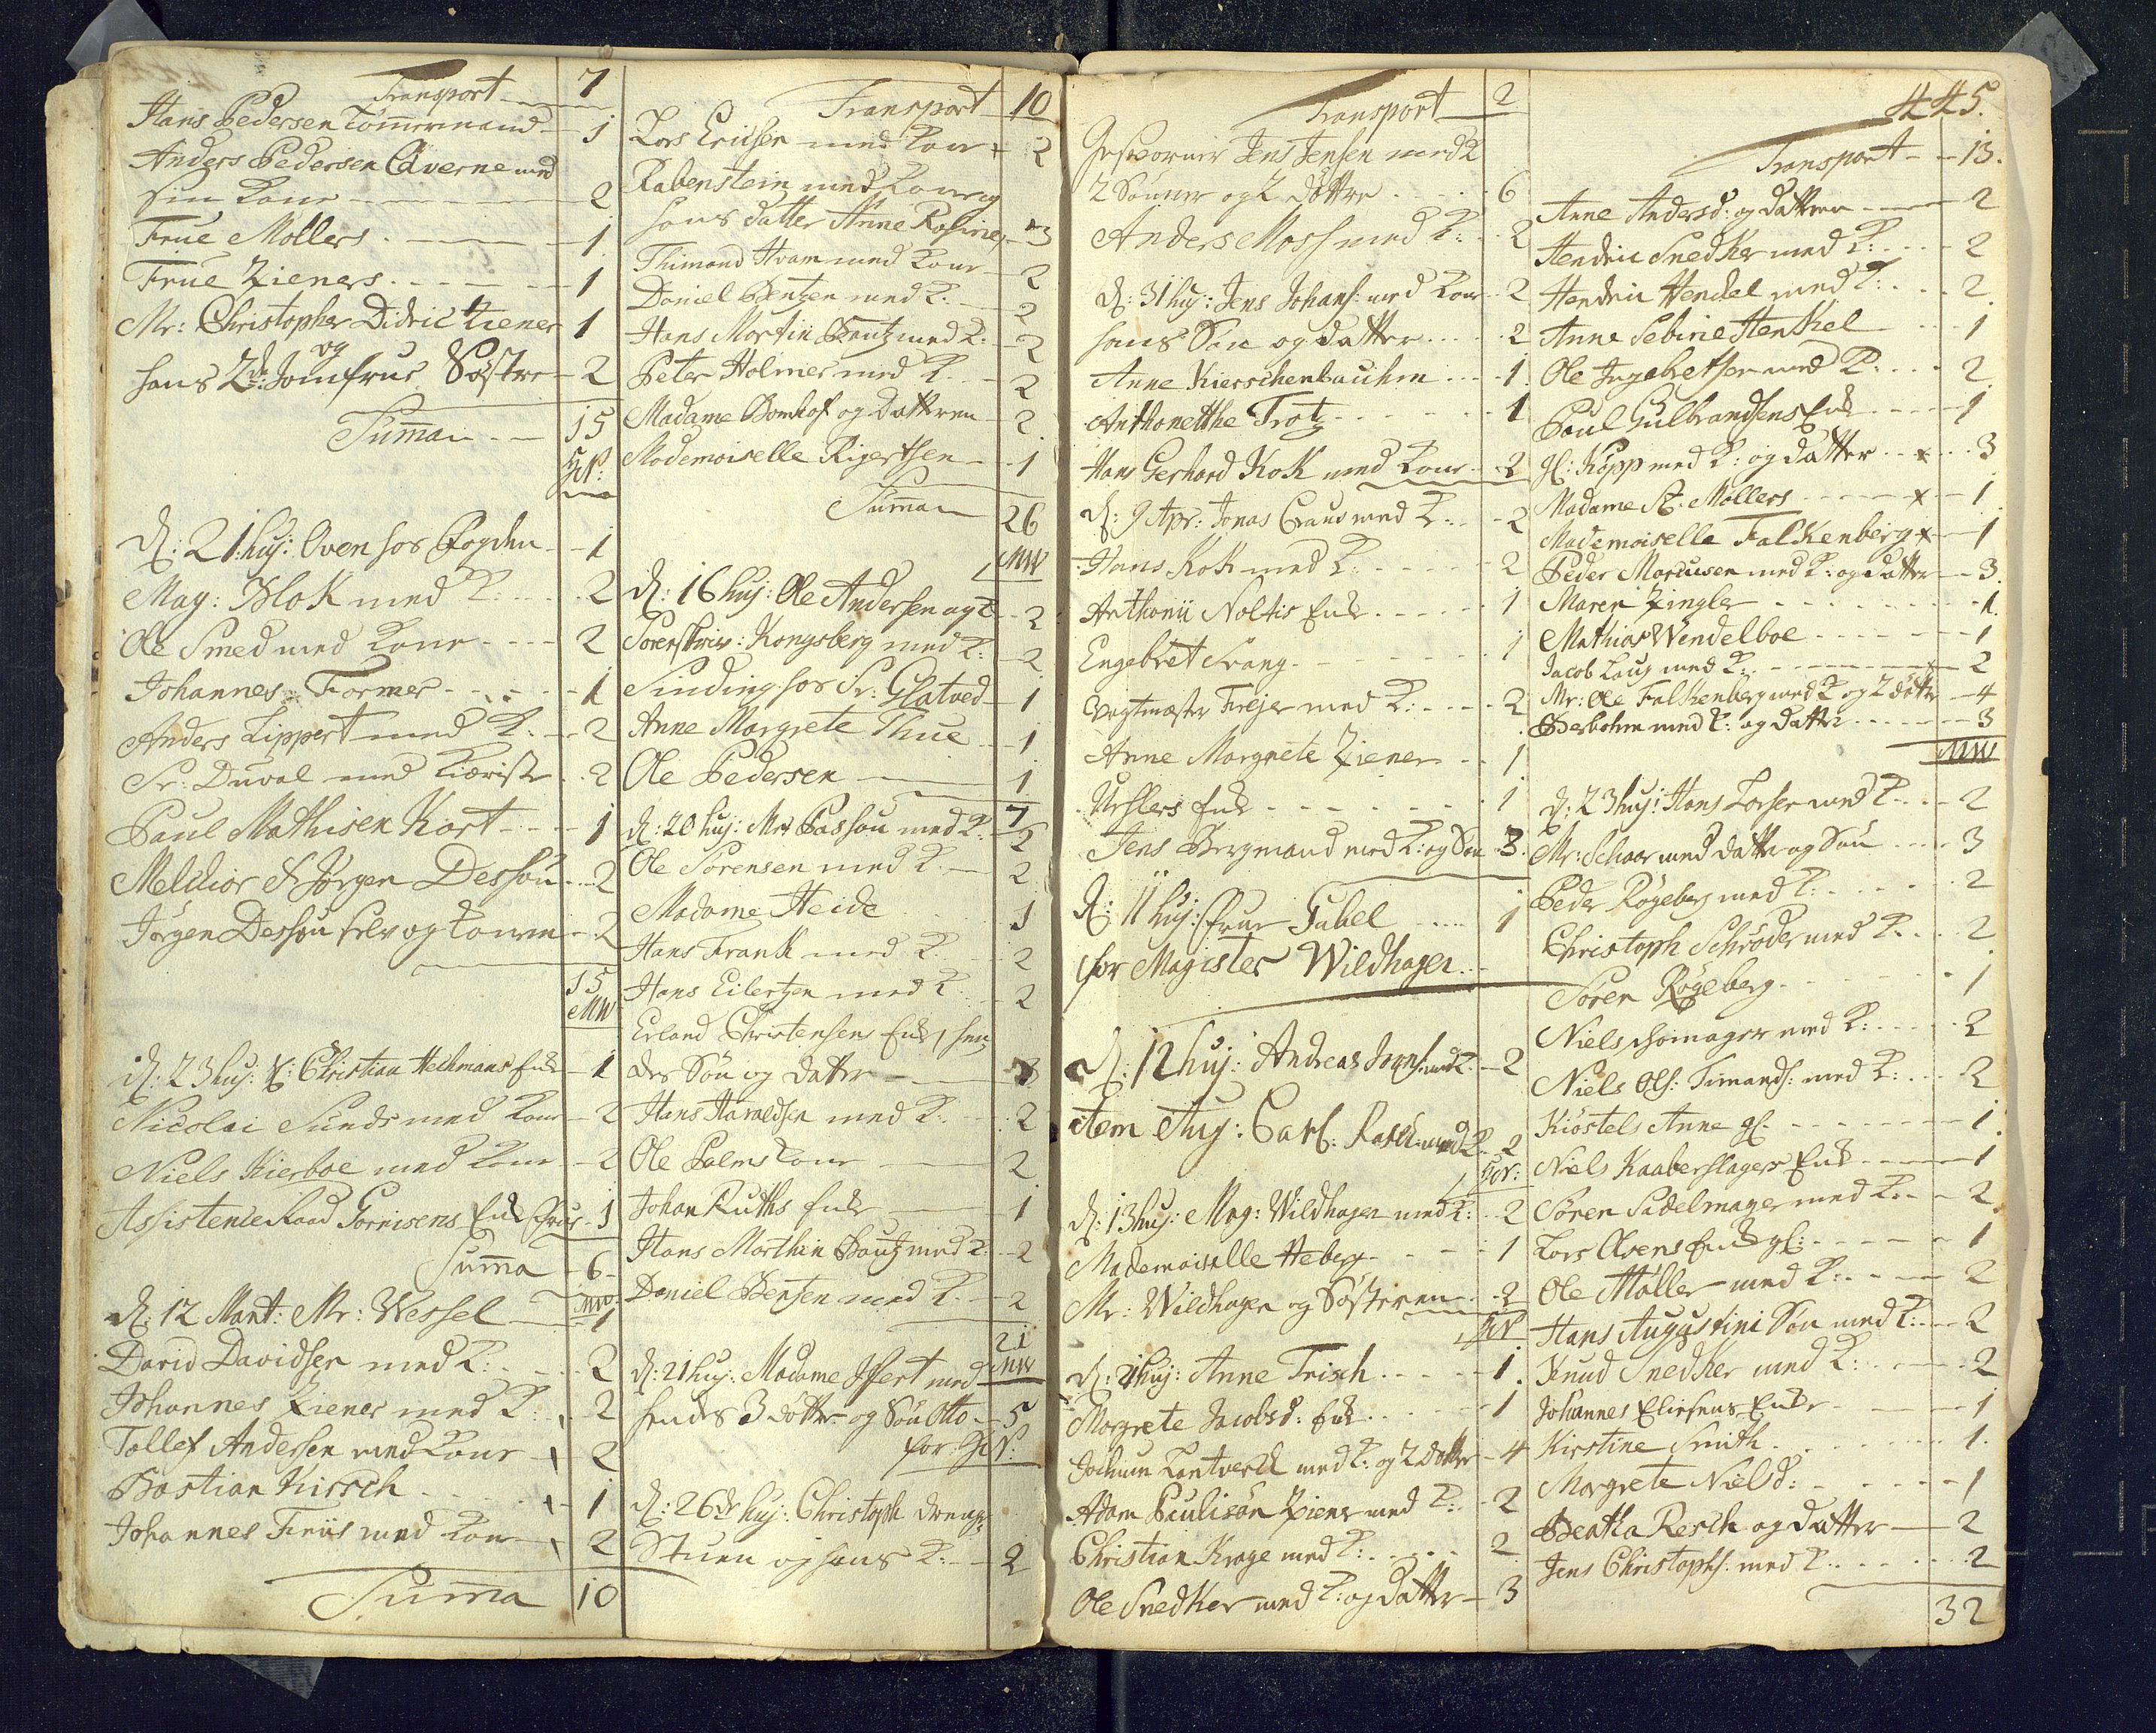 Transport 7
Hans Pedersen Tömmermand 1
Anders Pedersen Caverne med
sin Kone 2
Frue Möllers 1
Frue Zieners 1
Mr: Christopher Didric Ziener 1
og
hans 2de Jomfrue Söstre 2
Summa 15
d: 21 huj: Oven hos Fogden 1
Mag: Blok med K: 2
Ole Smed med Kone 2
Johannes Former 1
Anders Lippert med K: 2
Sr: Duval med Kiæriste 2
Paul Mathisen Kort 1
Melchior & Jörgen Dessou 2
Jörgen Dessou selv og Konen 2
15
MW
d: 23 huj: Christian Heckmans Enke 1
Nicolai Sunds med Kone 2
Niels Kierboe med Kone 2
Assistence Raad Gornisens Enke Frue 1
Summa 6
MW
d: 12 Mart: Mr: Wessel 1
David Davidsen med K: 2
Johannes Ziener med K: 2
Tollef Andersen med Kone 2
Bastian Kirsch 1
Johannes Friis med Kone 2
Summa 10
Transport 10
Lars Ericksen med Kone 2
Rabenstein med Kone og
hans datter Anne Rosine 3
Thimand Hvam med Kone 2
Daniel Bentzen med K: 2
Hans Martin Bautz med K: 2
Peter Holmer med K: 2
Madame Bomhof og Datteren 2
Mademoiselle Rigertsen 1
Summa 26
MW
d: 16 huj: Ole Andersen og K: 2
Sorenskriv: Kongsberg med K: 2
Sinding hos Sr: Glatved 1
Anne Margrete Thue 1
Ole Pedersen 1
7
d: 20 huj: Mr Passou med K: 2
Ole Sörensen med K: 2
Madame Heide 1
Hans Frank med K: 2
Hans Eilertzen med K: 2
Erland Christensens Enke, hen
des Sön og Datter 3
Hans Haraldsen med K: 2
Ole Palms Kone 2
Johan Ruths Enke 1
Hans Morthin Bautz med K: 2
Daniel Bensen med K: 2
21
MW
d: 21 huj: Madame Ifert med
hendes 3 döttre og Sön Otto 5
for
d: 26de huj: Christoph
Stuen og hans K: 2
Transport 2
Jens Jensen med K
2 Sönner og 2 döttre 6
Anders Moss med K: 2
d: 31 huj: Jens Johans: med Kone 2
hans Sön og datter 2
Anne Kierschenbauhm 1
Anthonetthe Trotz 1
Hans Gerhard Kok med Kone 2
d: 9 Apr: Jonas Craus med K: 2
Hans Kok med K: 2
Anthonii Noltis Enke 1
Engebret Svang 1
Vagtmester Freyer med K: 2
Anne Margrete Ziener 1
Urslers Enke 1
Jens Bergmand med K: og Sön 3
d: 11 huj: Frue Gabel 1
for Magister Wildhagen
d: 12 huj: Andreas med K: 2
item Aug: Carl: Rasch med K 2
d: 13 huj: Mag: Wildhagen med K: 2
Mademoiselle Heberg 1
Mr: Wildhagen og Sösteren 2
d: 21 huj: Anne Frisch 1
Morgrete Jacobsd: Enke 1
Jochum Lantverck med K: og 2 döttre 4
Adam Paulisön Ziener med K: 2
Christian Krage med K: 2
Ole Snedker med K: og Datter 3
445.
Transport 13.
Anne Andersd: og datteren 2
Hendric Snedker med K: 2
Hendric Henckel med K: 2
Anne Sebine Henkel 1
Ole Ingebretsen med K: 2
Poul Gulbrandsens Enke 1
Gl: Kopp med K: og datter 3
Madame St: Möllers 1
Mademoiselle Falkenberg 1
Peder Marcusen med K: og Datter 3
Maren Zingler 1
Mathias Wendelboe 1
Jacob Laug med K: 2
Mr: Ole Falkenberg med K og 2 döttre 4
Berbohm med K: og datter 3
MW
d: 23 huj: Hans Larsen med K 2
Mr: Schaar med datter og Sön 3
Peder Rögeberg med K: 2
Christoph Schröder med K 2
Sören Rögeberg 1
Niels Skomager med K: 2
Niels Ols: Timands: med K: 2
Kiöstels Anne gl. 1
Niels Kaaberslagers Enke 1
Sören Sadelmager med K: 2
Lars Olsens Enke gl: 1
Ole Möller med K: 2
Hans Augustini Sön med K: 2
Knud Snedker med K: 2
Johannes Eliesens Enke 1
Kirstine Smith 1
Margrete Nielsd: 1
Beatha Resch og datter 2
Jens Christophs: med K 2
32